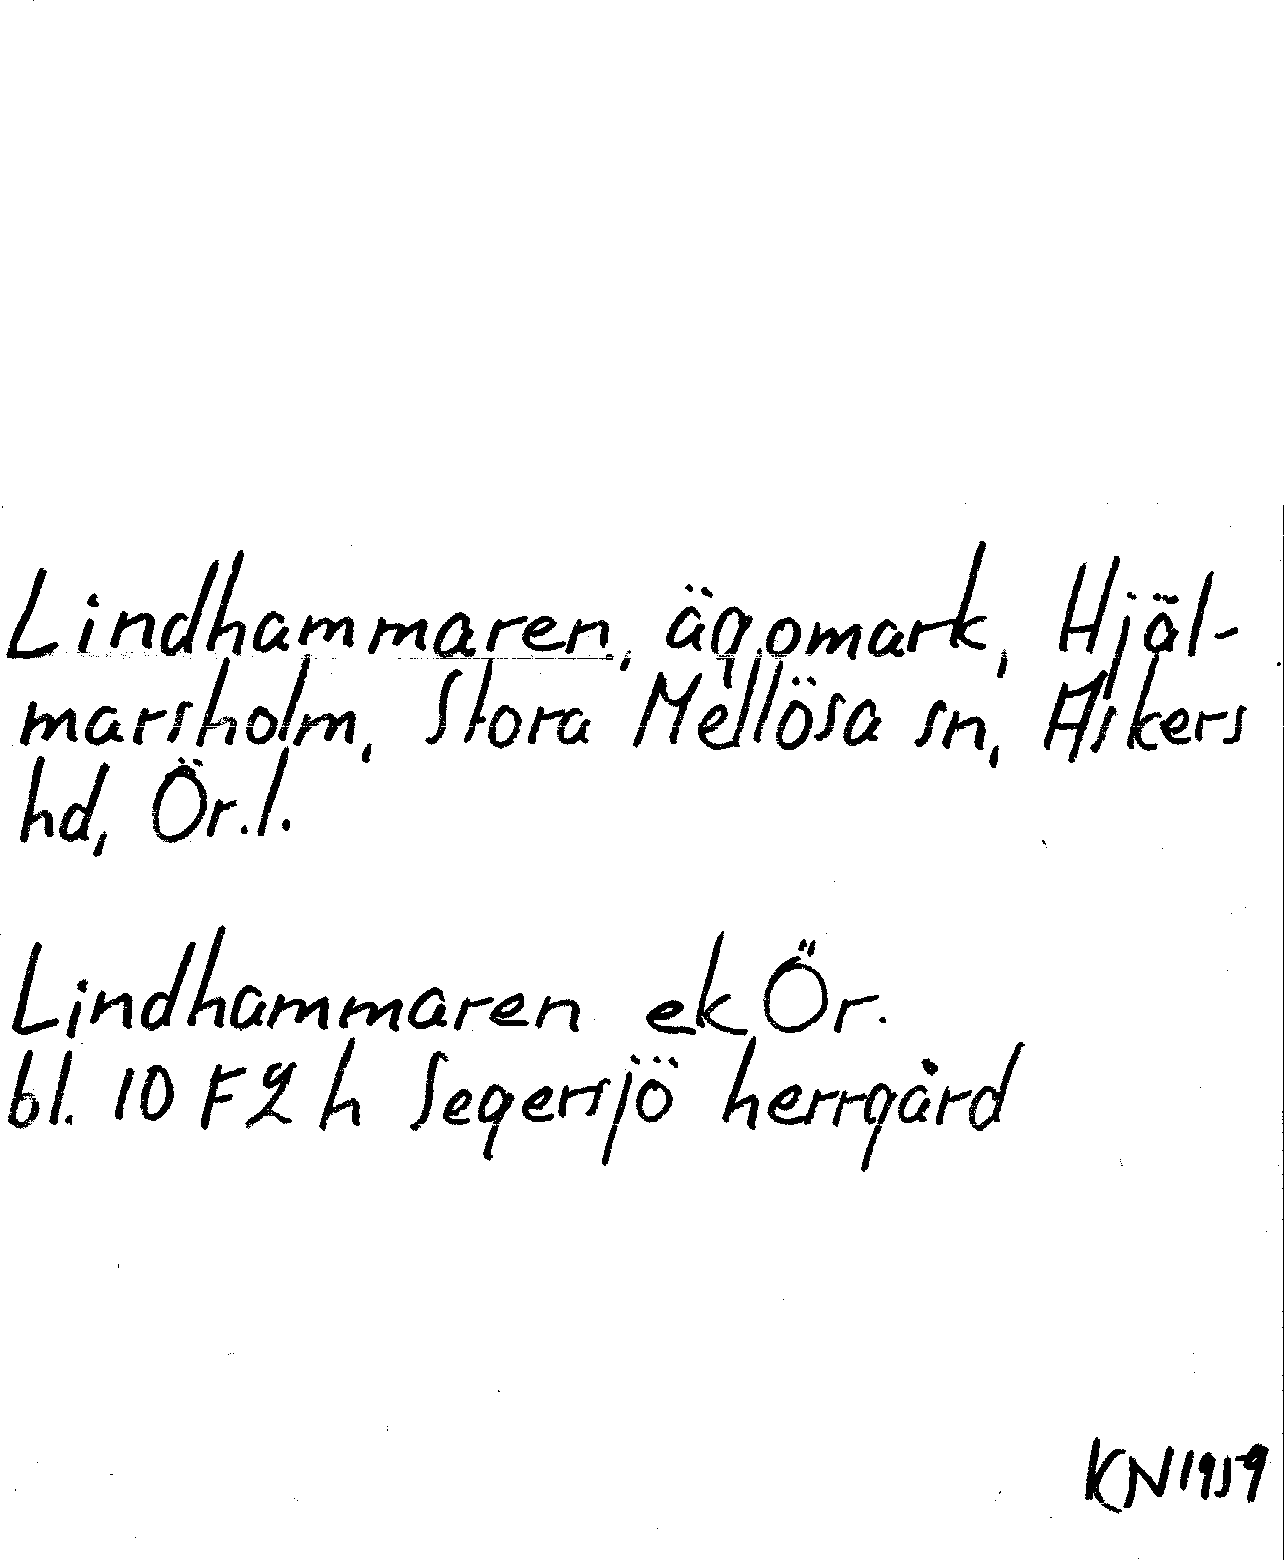 Lindhammaren, ägomark, Hjäl-
marsholm, Stora Mellösa sn, Askers
hd, Ör.l.
Lindhammaren ek Ör.
bl. 10 F 2 h Segersjö herrgård
KN 1959